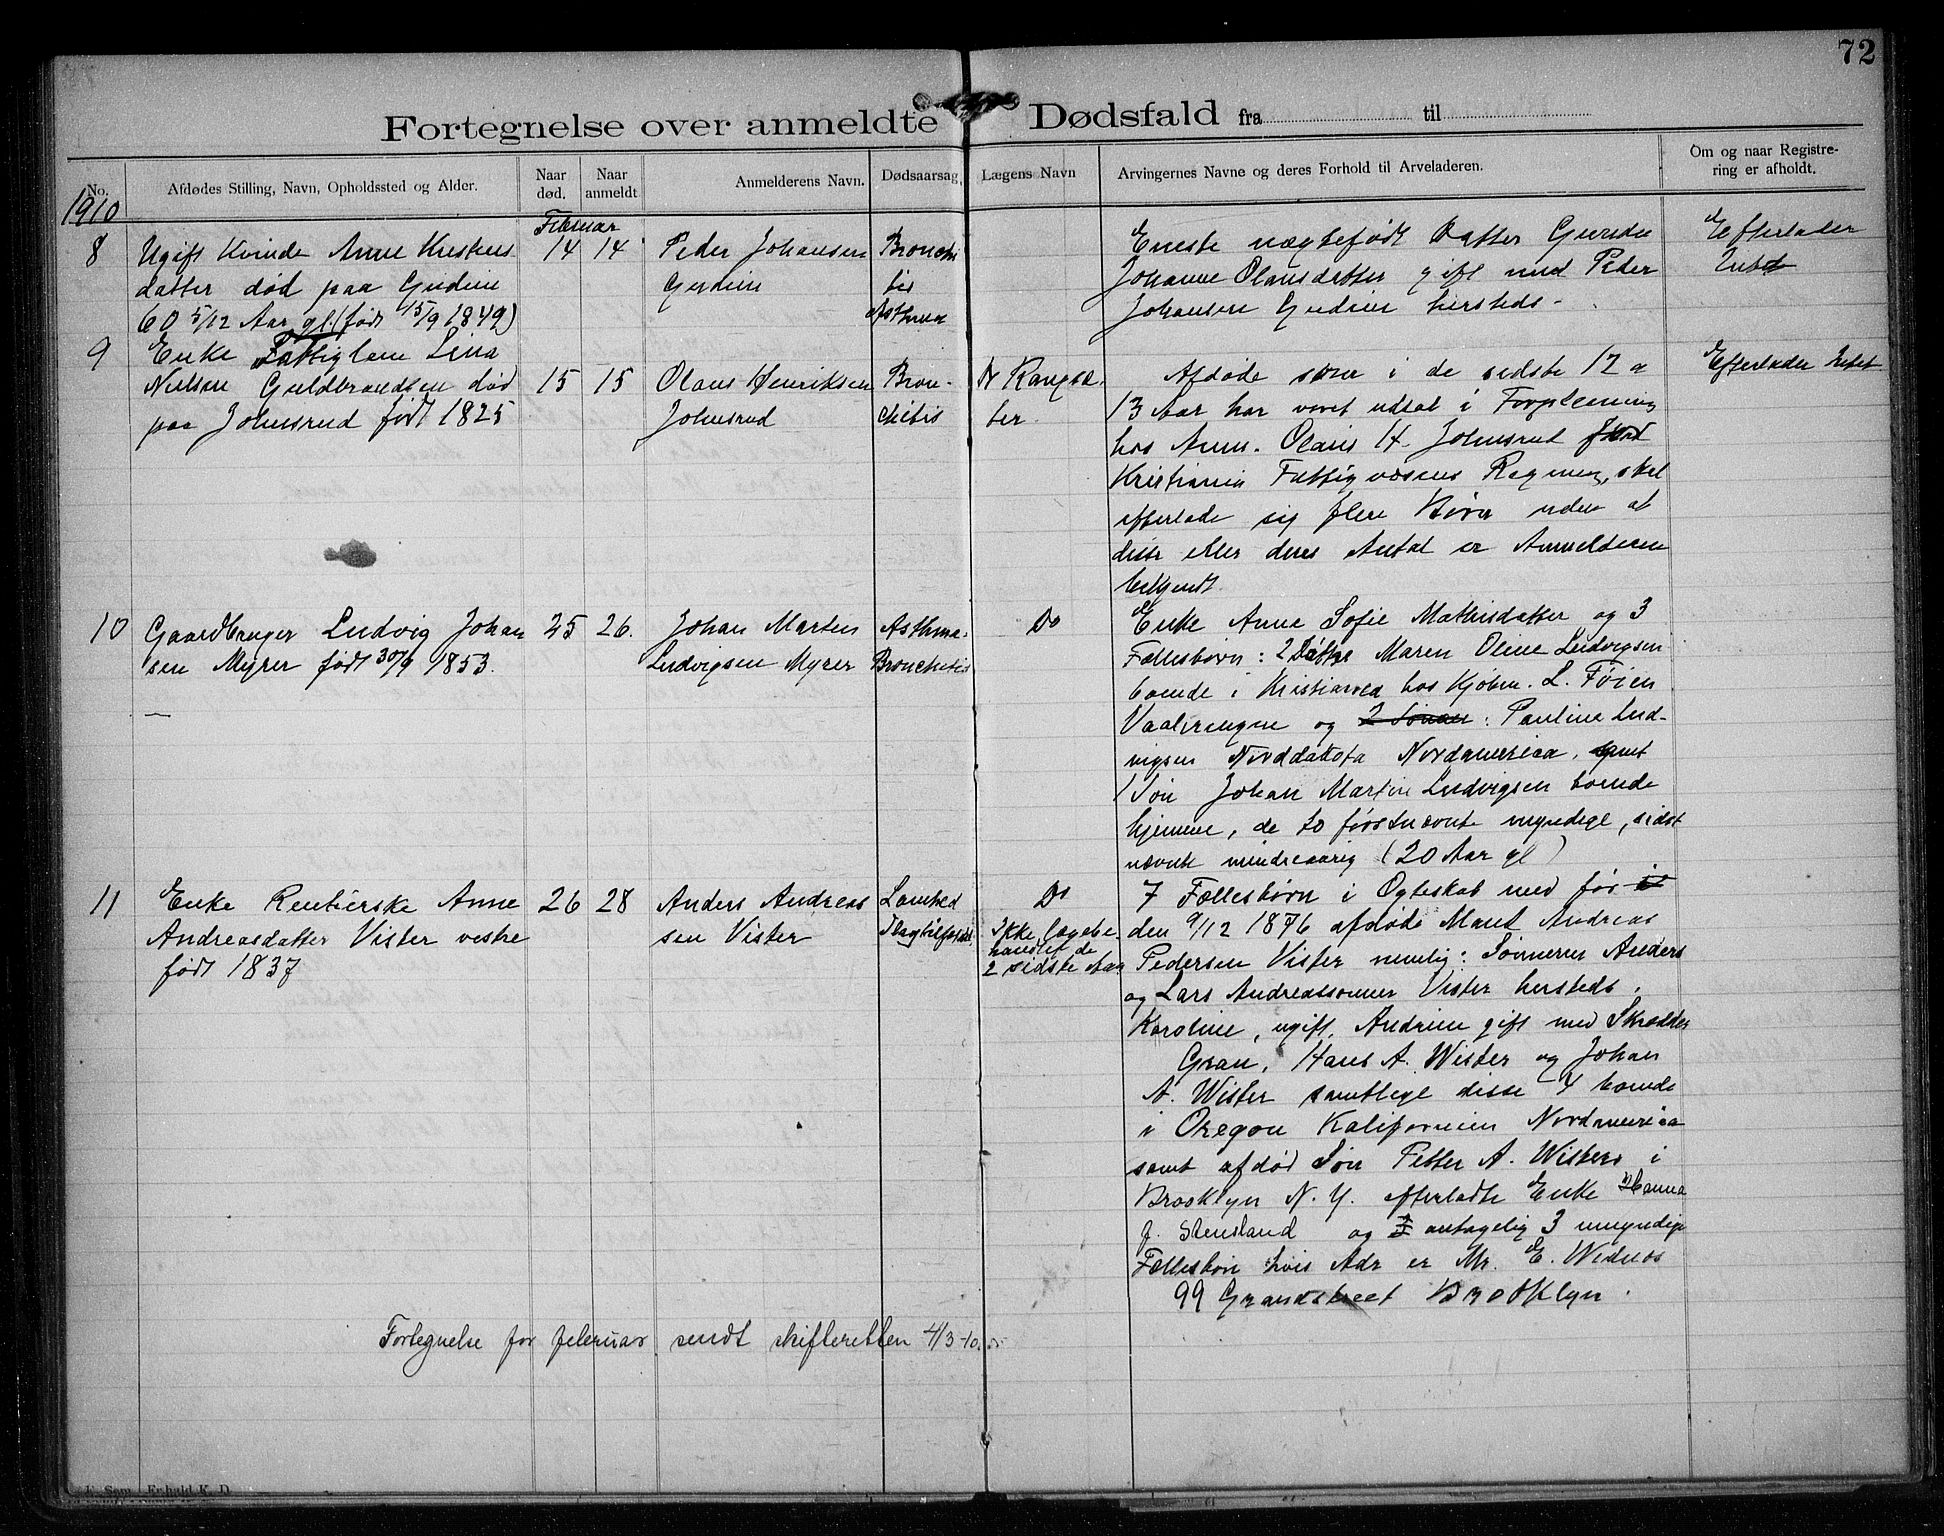 72
Fortegnelse over anmeldte Dødsfald fra til
No. Afdødes Stilling, Navn, Opholdssted og Alder. Naar død. Naar anmeldt Anmelderens Navn. Dødsaarsag. Lægens Navn Arvingernes Navne og deres Forhold til Arveladeren. Om og naar Registrering er afholdt.
1910
Februar
8 Ugift Kvinde Anne Kristens
datter død paa Gudim
60 5/12 Aar gl. (født 15/9 1849)
14 14 Peder Johansen
Gudim
Bronchi
tis
Asthma
Eneste uægtefødt Datter Gunda
Johanne Olausdatter gift med Peder
Johansen Gudim hersteds.
Efterlader
Intet
9 Enke Fattiglem Lina
Nielsen Guldbrandsen død
paa Johnsrud født 1825
15 15 Olaus Henriksen
Johnsrud
Bron-
chitis
Dr Rangsæ
ter.
Afdøde som i de sidste 12 a
13 Aar har været udsat i Forpleining
hos Anm. Olaus H. Johnsrud for
Kristiania Fattigvæsens Regning, skal
efterlade sig flere Børn uden at
disse eller deres Antal er Anmelderen
bekjendt.
Efterlader Intet
10 Gaardbruger Ludvig Johan
sen Myrer født 30/9 1853.
25 26. Johan Martin
Ludvigsen Myrer
Asthma-
Bronchitis
Do
Enke Anne Sofie Mathisdatter og 3
Fællesbørn: 2 Døttre Maren Oline Ludvigsen
boende i Kristiania hos Kjøbm. L. Føien
Vaalerengen og 2 Sønner: Pauline Lud-
vigsen Norddakota Nordamerica. samt
1 Søn Johan Martin Ludvigsen boende
hjemme, de to førstnævnte myndige, sidst
nævnte mindreaarig (20 Aar gl)
11 Enke Rentierske Anne
Andreasdatter Vister vestre
født 1837
26 28 Anders Andreas
sen Vister
Lamhed
Slagtilfælde
Do
Ikke lægebe-
handlet de
2 sidste Aar
7 Fællesbørn i Egteskab med før
den 9/12 1876 afdøde Mand Andreas
Pedersen Vister nemlig: Sønnerne Anders
og Lars Andreassønner Vister hersteds.
Karoline, ugift, Andrine gift med Skrædder
Gran, Hans A. Wister og Johan
A. Wister samtlige disse 4 boende
i Oregon Kalifornien Nordamerica
samt afdød Søn Petter A. Wisters i
Brooklyn N. Y. efterladte Enke Hanna
f. Stensland og 3 antagelig 3 umyndige
Fællesbørn hvis Adr er Mr. E.
99 Grandstreet Brooklyn.
Fortegnelse for februar sendt skifteretten 4/3-10.